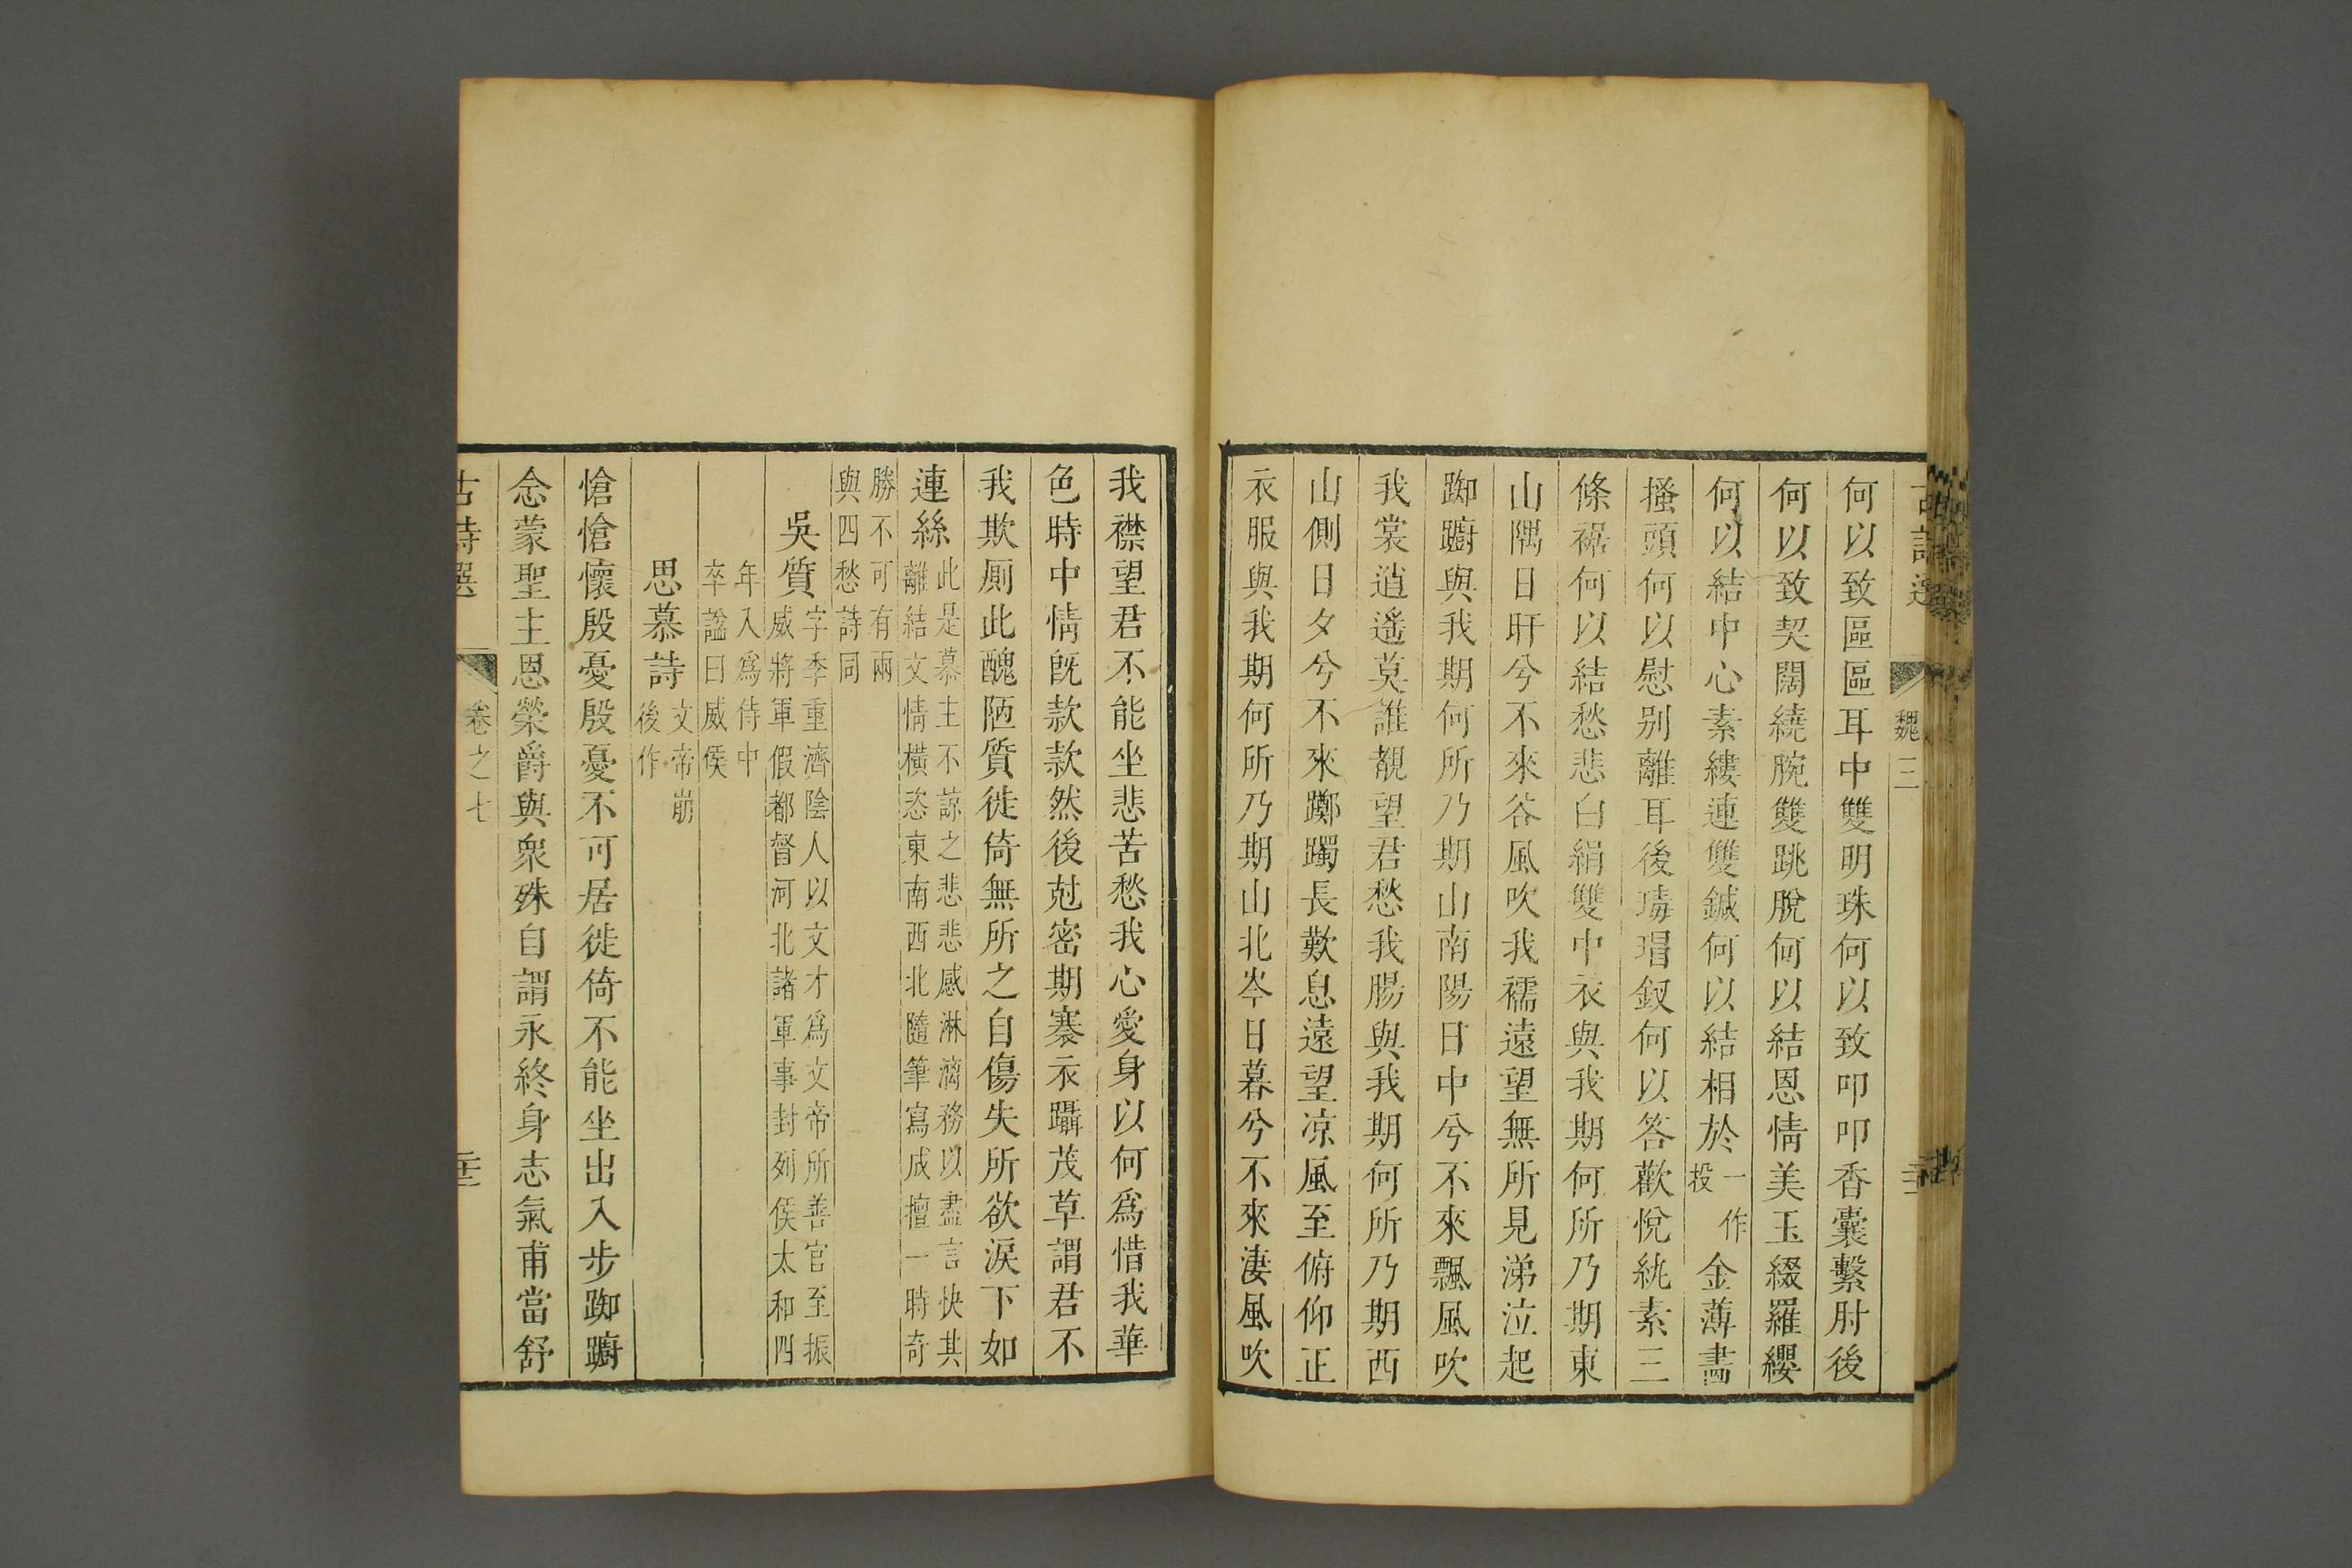 魏三
何以致區區耳中雙明珠何以致叩叩香囊繫肘後
何以致契闊繞腕雙跳脫何以結恩情美玉綴羅纓
何以結中心素縷連雙鍼何以結相於一作投金薄畫
搔頭何以慰別離耳後瑇瑁釵何以答歡悅紈素三
條裾何以結愁悲白絹雙中衣與我期何所乃期東
山隅日旰兮不來谷風吹我襦遠望無所見涕泣起
踟躕與我期何所乃期山南陽日中兮不來飄風吹
我裳逍遙莫誰覩望君愁我腸與我期何所乃期西
山側日夕兮不來躑躅長歎息遠望凉風至俯仰正
衣服與我期何所乃期山北岑日暮兮不來淒風吹
我襟望君不能坐悲苦愁我心愛身以何爲惜我華
色時中情旣款款然後尅密期褰衣躡茂草謂君不
我欺厠此醜陋質徙倚無所之自傷失所欲淚下如
連絲此是慕主不諒之悲悲感淋漓務以盡言快其離結文情橫恣東南西北隨筆寫成擅一時奇
勝不可有兩與四愁詩同
吳質字季重濟陰人以文才爲文帝所善官至振威將軍假都督河北諸軍事封列侯太和四
年入爲侍中卒謚曰威侯
思慕詩文帝崩後作
愴愴懷殷憂殷憂不可居徙倚不能坐出入步踟躕
念蒙聖主恩榮爵與衆殊自謂永終身志氣甫當舒
古詩選 卷之七